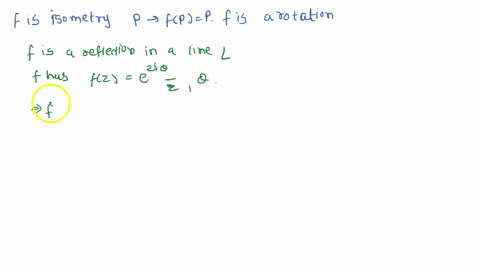 f is isometry P → f(P)=P. f is a rotation
f is a reflection in a line L
f hus f(z) = e^{2iθ} z̄, θ.
⇒ f